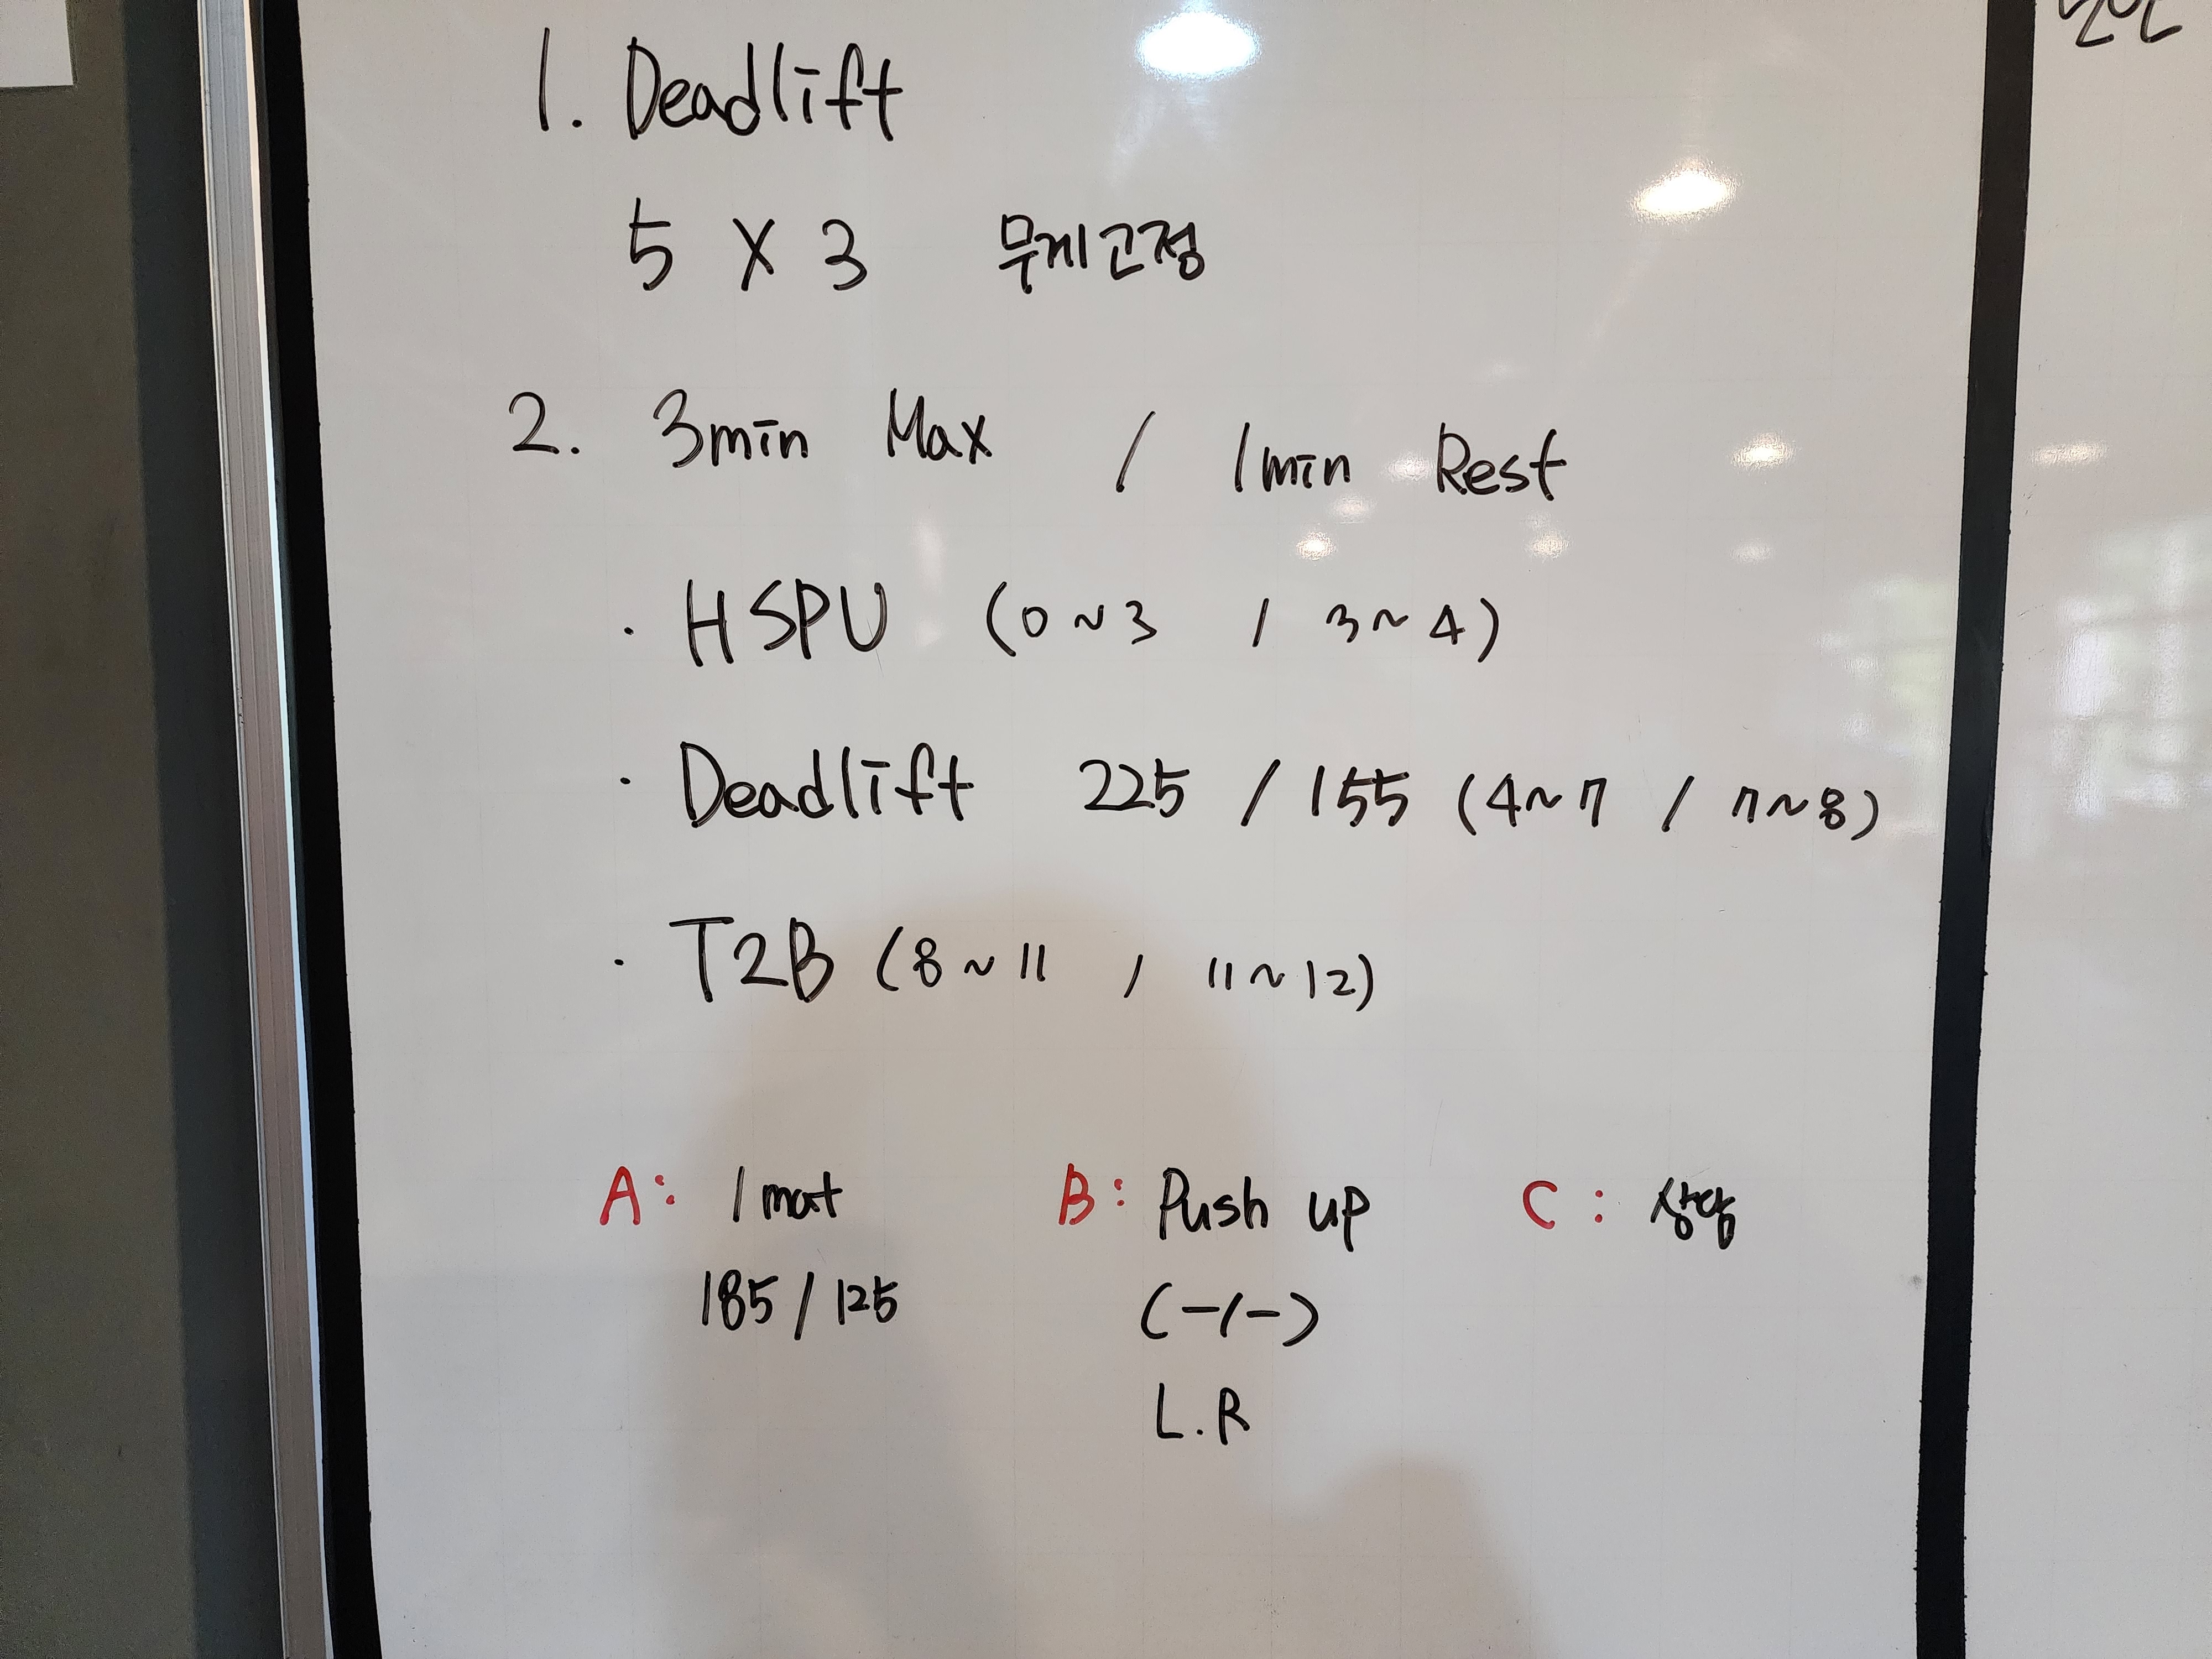 1. Deadlift
5 X 3 무게고정
2. 3min Max / 1min Rest
· HSPU (0~3 / 3~4)
· Deadlift 225 / 155 (4~7 / 7~8)
· T2B (8~11 / 11~12)
A: 1mat B: Push up C: 상담
185/125 (-/-)
L.R